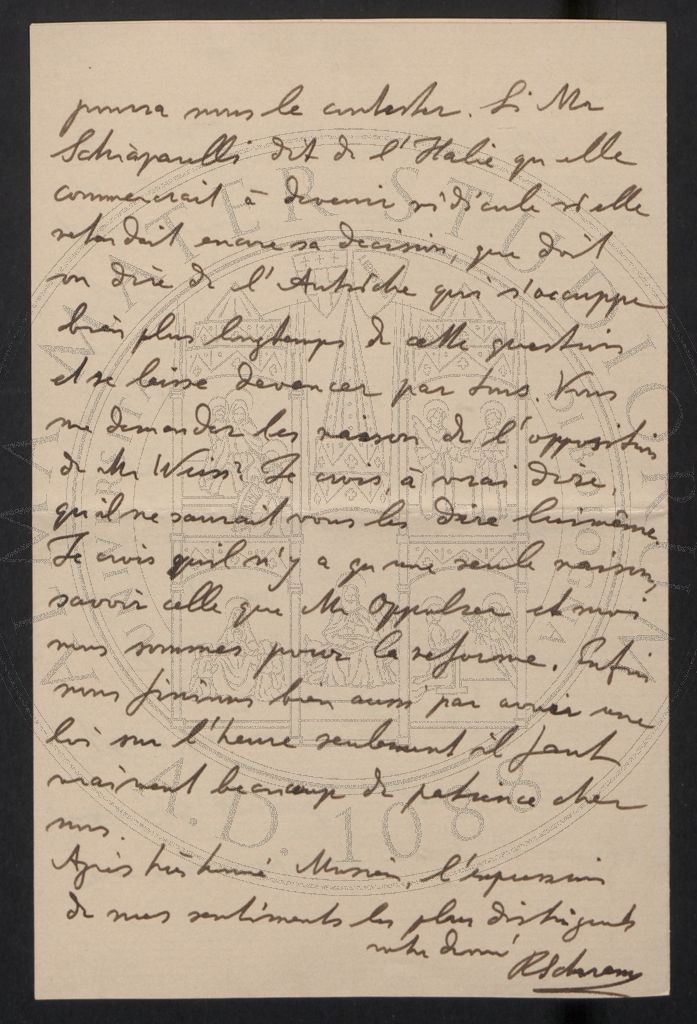 pourra nous le contester. Si Mr
Schiaparelli dit de l'Italie qu'elle
commencerait à devenir ridicule si elle
retardait encore sa decision, que doit
on dire de l'Autriche qui s'accuppe
bien plus longtemps de cette question
et se laisse devancer par tous. Vous
me demandez les raison de l'opposition
de Mr Weiss? Je crois, à vrai dire,
qu'il ne saurait vous les dire luimême.
Je crois qu'il n'y a qu'une seule raison,
savoir celle que Mr Oppolzer et moi
nous sommes pour la reforme. Enfin
nous finirons bien aussi par avoir une
loi sur l'heure seulement il faut
vraiment beaucoup de patience chez
nous.
Agréez très honoré Monsieur, l'expression
de mes sentiments les plus distingués
votre devoué
RSchram
ALMA MATER STUDIORUM
A.D. 1088